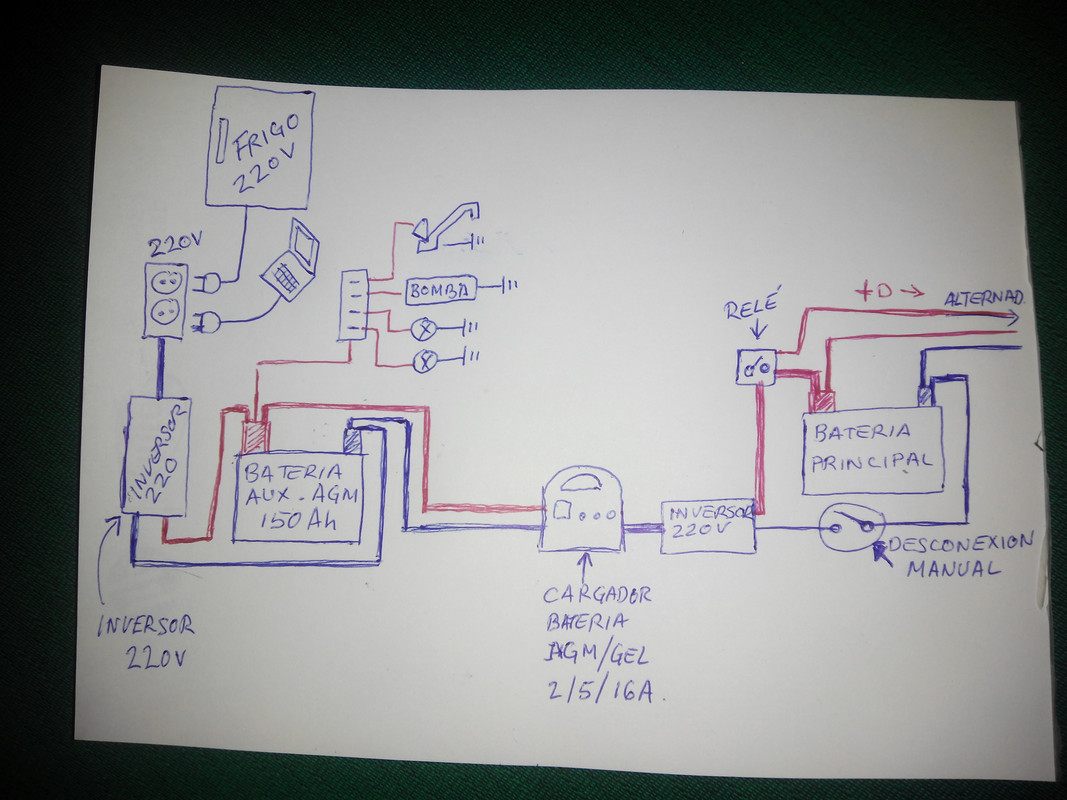 FRIGO
220V
220V
BOMBA
RELÉ
+D →
ALTERNAD.
INVERSOR
220
BATERIA
AUX. AGM
150Ah
BATERIA
PRINCIPAL
INVERSOR
220V
DESCONEXION
MANUAL
CARGADOR
BATERIA
AGM/GEL
2/5/16A.
INVERSOR
220V